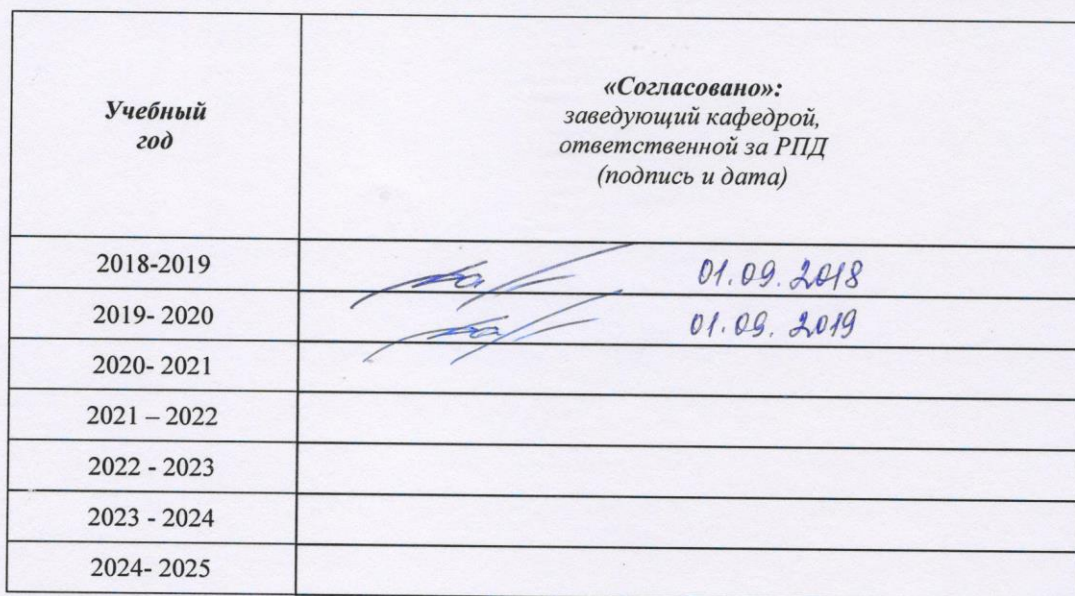 Учебный
год
«Согласовано»:
заведующий кафедрой,
ответственной за РПД
(подпись и дата)
2018-2019 01.09.2018
2019- 2020 01.09.2019
2020- 2021
2021 – 2022
2022 - 2023
2023 - 2024
2024- 2025